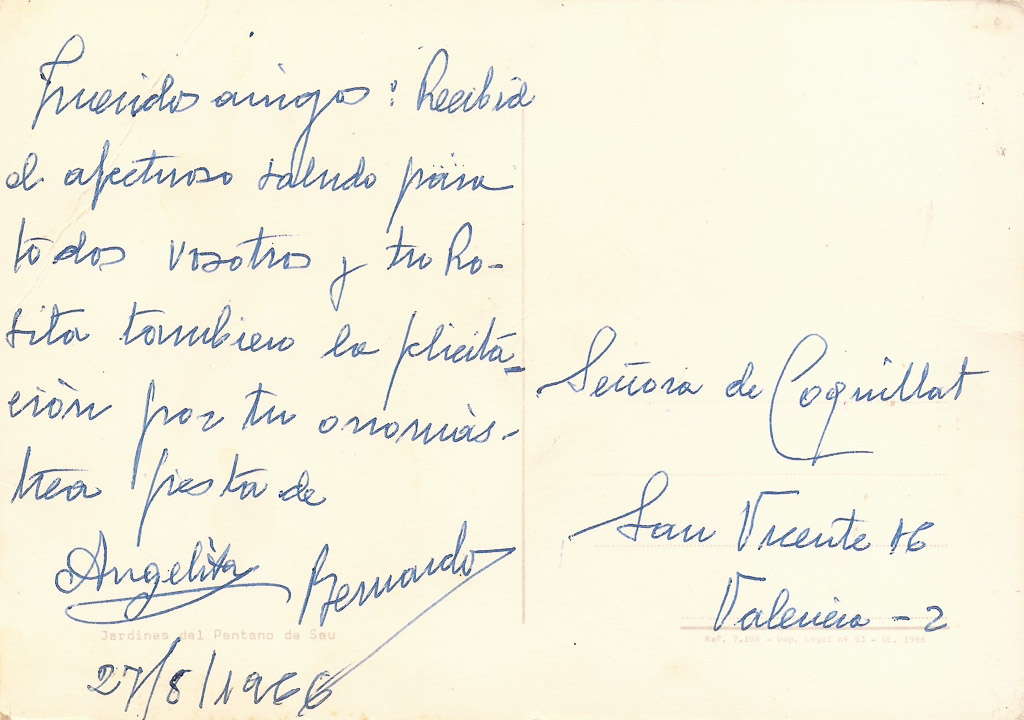 Queridos amigos: Recibid
el afectuoso saludo para
todos vosotros y tu Ro-
sita tambien la felicita-
ción por tu onomás-
tica fiesta de
Angelita Bernardo
Jardines del Pantano de Sau
27/8/1966
Señora de Coquillat
San Vicente 16
Valencia - 2